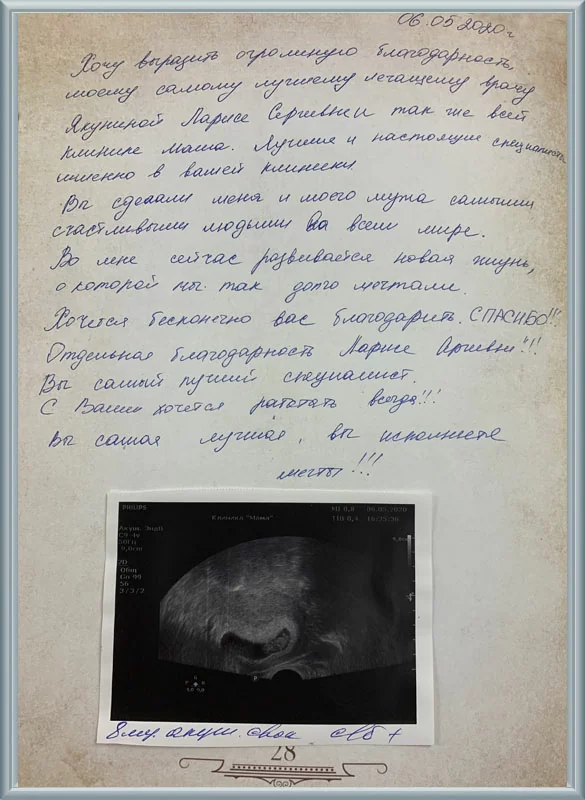 06.05.2020г
Хочу выразить огромную благодарность
моему самому лучшему лечащему врачу
Якуниной Ларисе Сергеевне и так же всей
клинике Мама. Лучшие и настоящие специалисты
именно в вашей клинике.
Вы сделали меня и моего мужа самыми
счастливыми людьми на всем мире.
Во мне сейчас развивается новая жизнь,
о которой мы так долго мечтали.
Хочется бесконечно вас благодарить. СПАСИБО!!!
Отдельная благодарность Ларисе !!!
Вы самый лучший специалист.
С Вами хочется работать всегда!!!
Вы самая лучшая, вы исполняете
мечты!!!
PHILIPS
Клиника "Мама"
MI 0,8 06.05.2020
TIB 0,4
Акуш. ЭндП
C9-4v
50Гц
9,0cm
2D
Общ
Сп 99
56
3/3/2
P
8 нед. акуш. срок с/б +
28